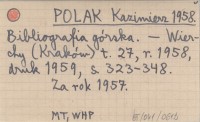 POLAK Kazimierz 1958.
Bibliografia górska. — Wier-
chy (Kraków) t. 27, r. 1958,
druk 1959, s. 323-348.
Za rok 1957.
MT, WHP